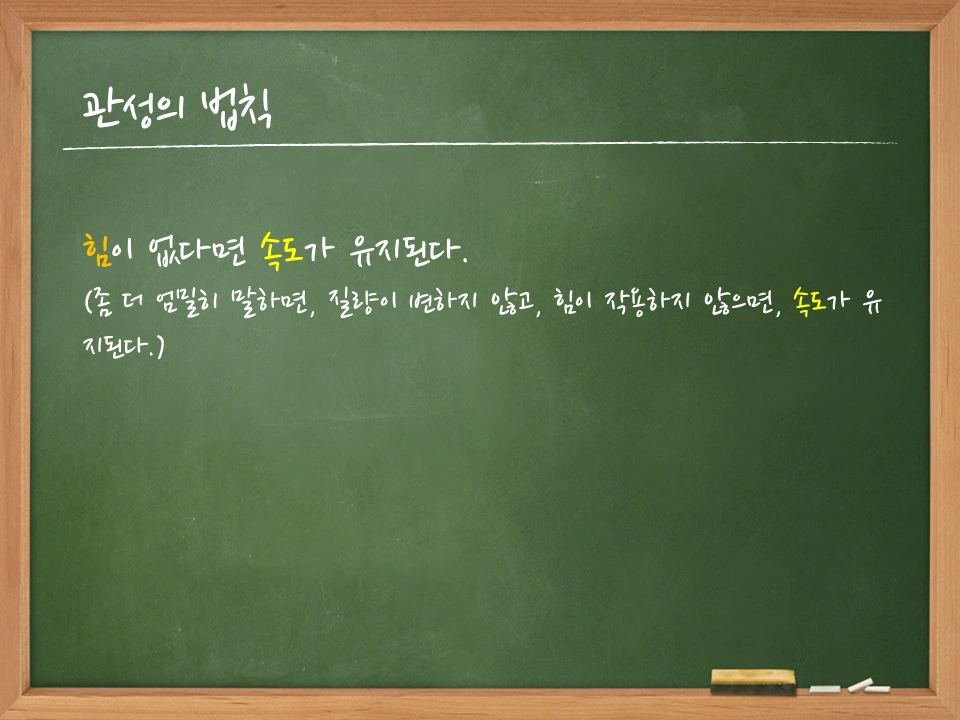 관성의 법칙
힘이 없다면 속도가 유지된다.
(좀 더 엄밀히 말하면, 질량이 변하지 않고, 힘이 작용하지 않으면, 속도가 유
지된다.)